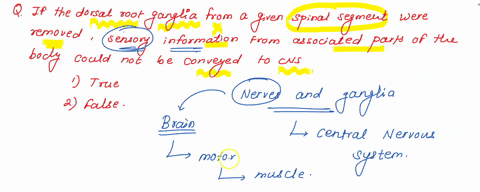 Q. If the dorsal root ganglia from a given spinal segment were
removed, sensory information from associated parts of the
body could not be conveyed to CNS
1) True
2) False.
Nerves and ganglia
Brain
central Nervous
system.
motor
muscle.